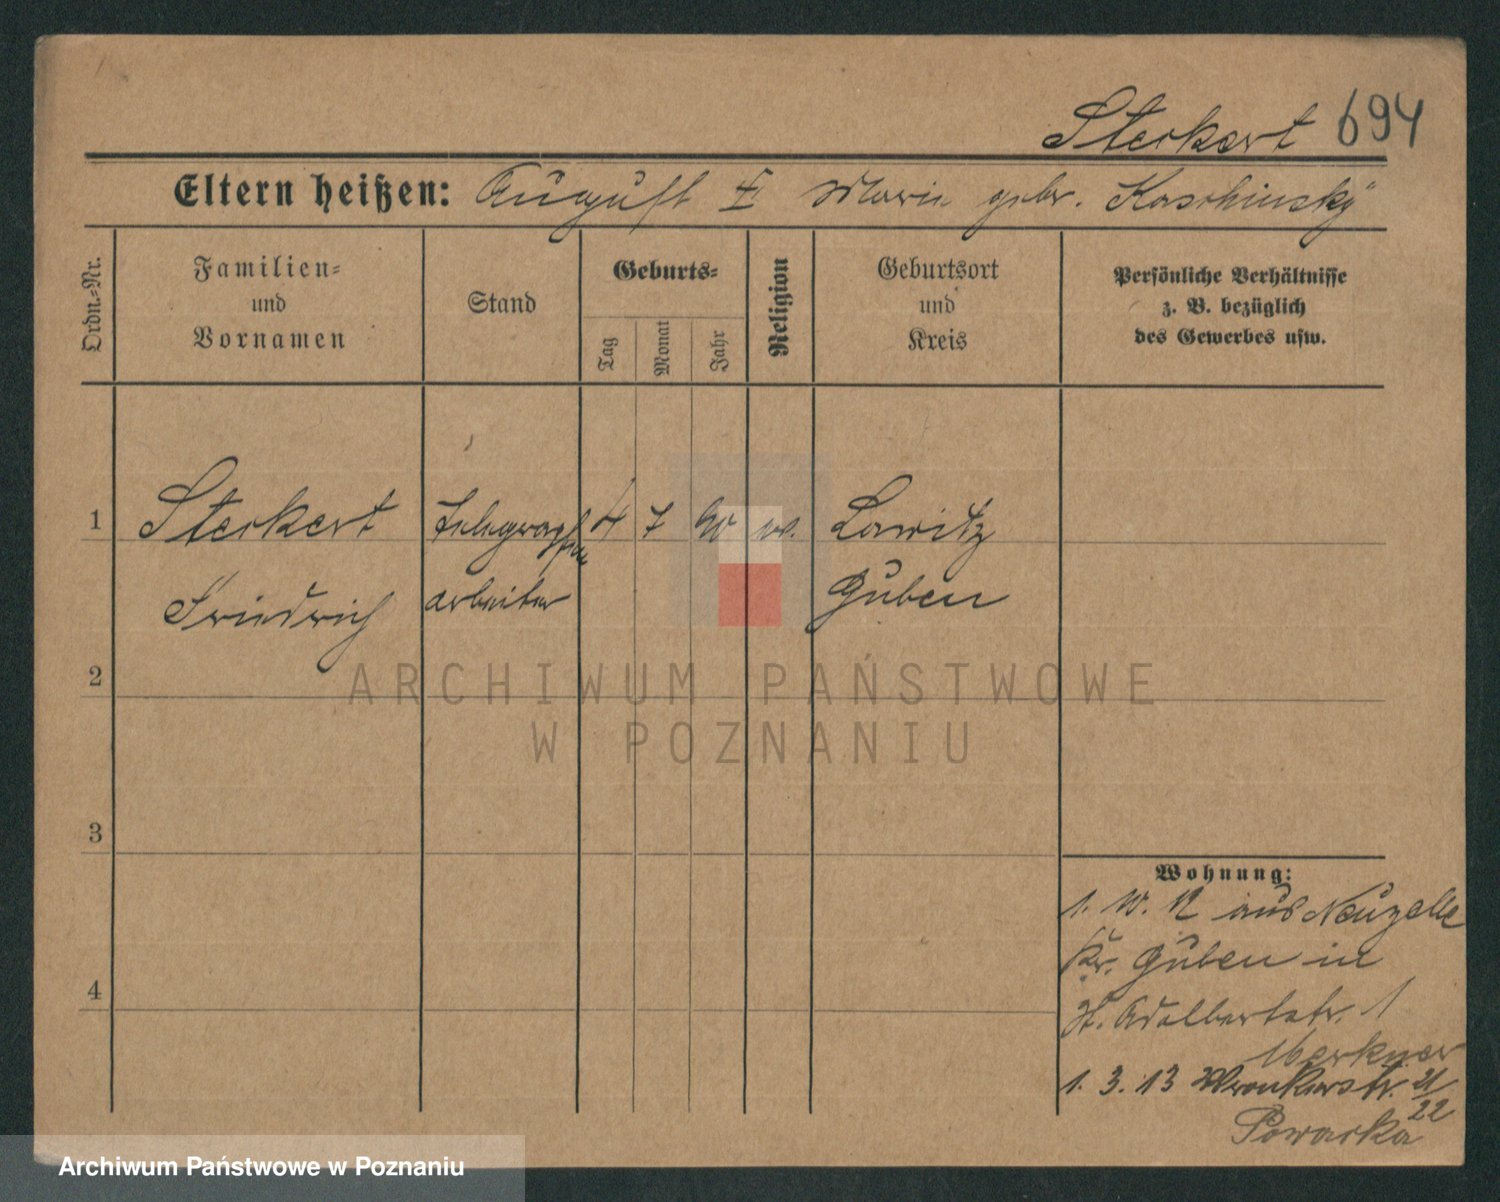 Steckert 694
Eltern heißen: August & Marie gebr. Kaschinsky
Ordn.=Nr.
Familien=
und
Vornamen
Stand
Geburts=
Tag
Monat
Jahr
Religion
Geburtsort
und
Kreis
Persönliche Verhältnisse
z. B. bezüglich
des Gewerbes usw.
1 Steckert Telegraphen 4 7 90 w. Lawitz
Friedrich arbeiter Guben
2
3
4
Wohnung:
1. 10. 12 aus Neuzelle
Kr. Guben in
St. Adalbertstr. 1
1. 3. 13 Wronkerstr. 21/22
ARCHIWUM PAŃSTWOWE
W POZNANIU
Archiwum Państwowe w Poznaniu